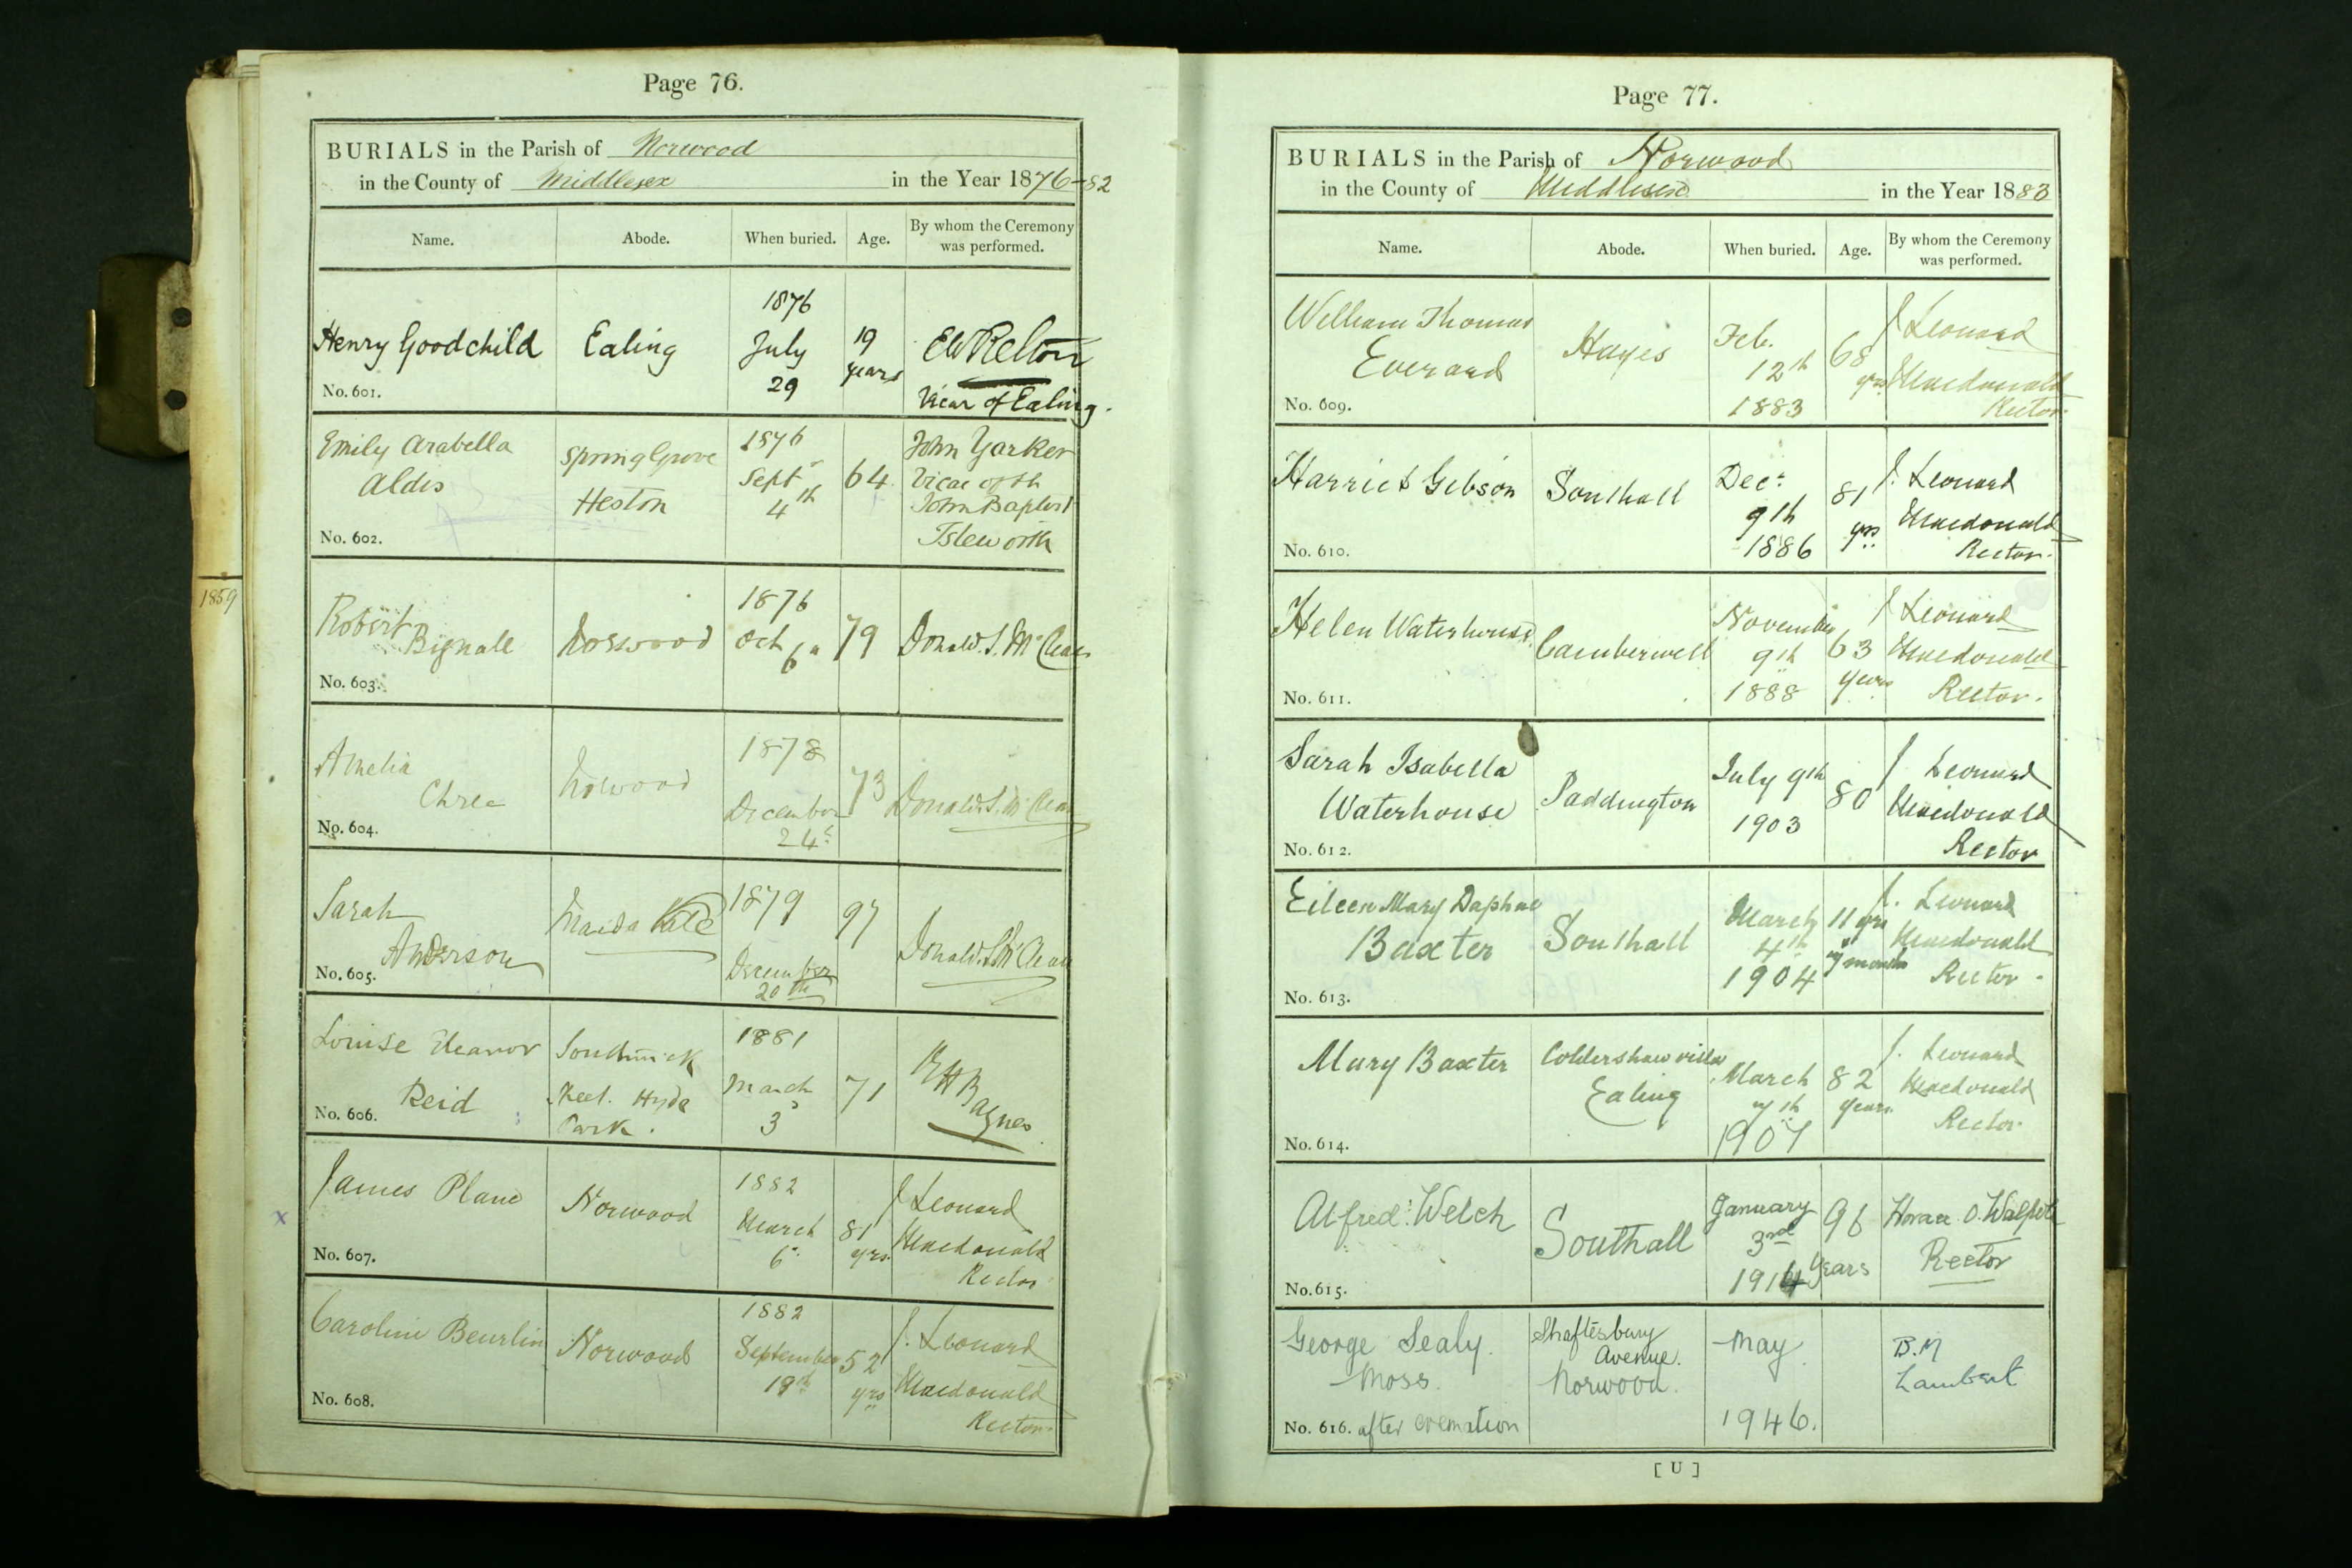 Page 76.
BURIALS in the Parish of Norwood
in the County of Middlesex in the Year 1876-82
Name. Abode. When buried. Age. By whom the Ceremony was performed.
Henry Goodchild
No. 601.
Ealing
1876
July
29
19
years
EW Relton
Vicar of Ealing.
Emily Arabella
Aldis
No. 602.
Spring Grove
Heston
1876
Sept
4th
64
John Yarker
Vicar of St
John Baptist
Isleworth
Robert
Bignall
No. 603.
Norwood
1876
Oct
6
79
Donald. S. McClean
Amelia
No. 604.
Norwood
1878
December
24
73
Donald. S. McClean
Sarah
Anderson
No. 605.
Maida Vale
1879
December
20th
97
Donald. S. McClean
Louise Eleanor
Reid
No. 606.
Southwick
Street. Hyde
Park.
1881
March
3
71
James Plane
No. 607.
Norwood
1882
March
6
81
yrs.
J Leonard
Macdonald
Rector
Caroline Beurlin
No. 608.
Norwood
1882
September
52
yrs
J. Leonard
Macdonald
Rector.
1859
x
Page 77.
BURIALS in the Parish of Norwood
in the County of Middlesex in the Year 1883
Name. Abode. When buried. Age. By whom the Ceremony was performed.
William Thomas
Everard
No. 609.
Hayes
Feb.
12th
1883
68
yrs
J Leonard
Macdonald
Rector.
Harriet Gibson
No. 610.
Southall
Decr
9th
1886
81
yrs
J. Leonard
Macdonald
Rector.
Helen Waterhouse
No. 611.
Camberwell
November
9th
1888
63
years
J Leonard
Macdonald
Rector.
Sarah Isabella
Waterhouse
No. 612.
Paddington
July 9th
1903
80
J Leonard
Macdonald
Rector
Eileen Mary Daphne
Baxter
No. 613.
Southall
March
4th
1904
11 yrs
7 months
J. Leonard
Macdonald
Rector.
Mary Baxter
No. 614.
Coldershaw villa
Ealing
March
7th
1907
82
years
J. Leonard
Macdonald
Rector.
Alfred Welch
No. 615.
Southall
January
3rd
1914
96
years
Horace O. Walpole
Rector
George Sealy.
Moss.
No. 616. after cremation
Shaftesbury
Avenue.
Norwood.
May
1946.
B. M
Lambert
[ U ]